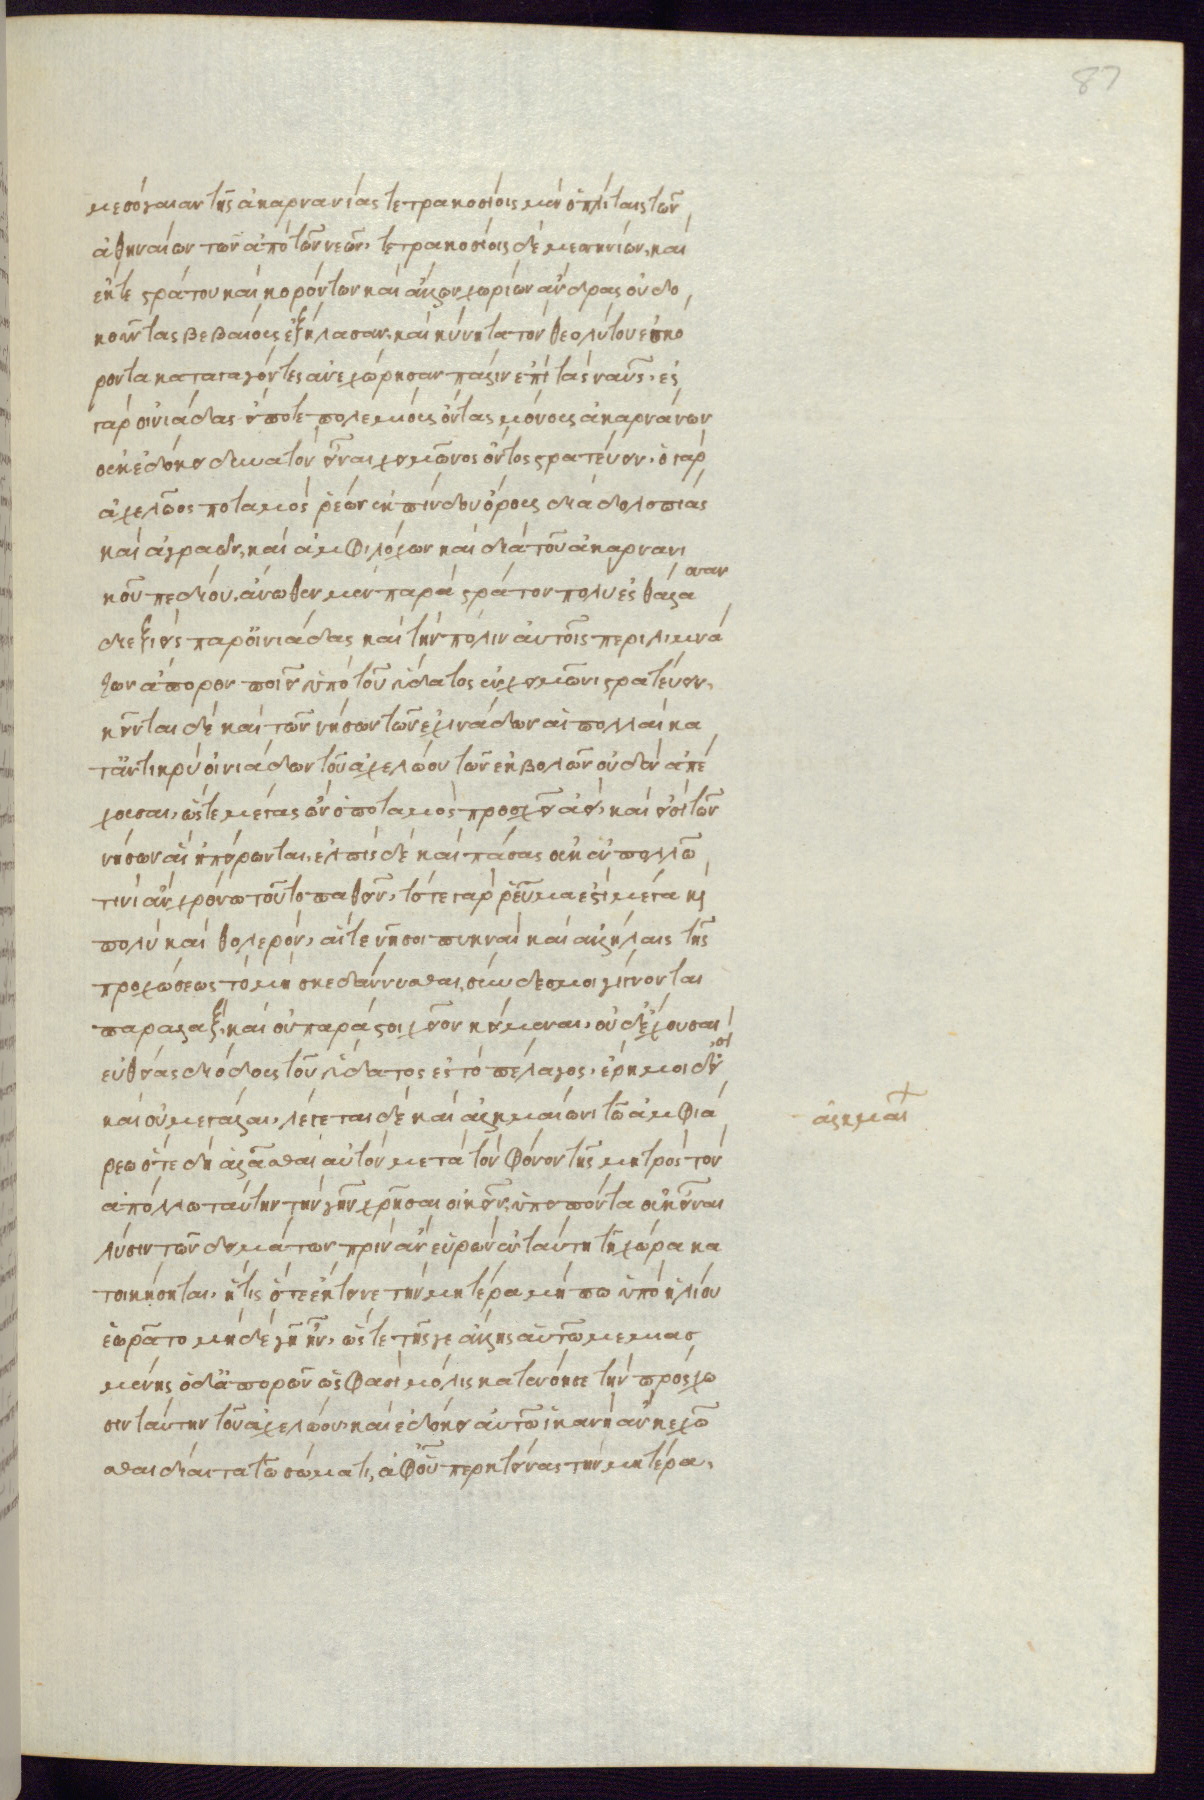 87
μεσόγαιαν τῆς ἀκαρνανίας τετρακοσίοις μὲν ὁπλίταις τῶν
ἀθηναίων τῶν ἀπὸ τῶν νεῶν, τετρακοσίοις δὲ μεσηνίων, καὶ
ἔκ τε στράτου καὶ κορόντων καὶ ἄλλων χωρίων ἄνδρας οὐ δο
κοῦντας βεβαίους ἐξήλασαν, καὶ κύνητα τὸν θεολύτου ἐς κό
ροντα καταγαγόντες ἀνεχώρησαν πάλιν ἐπὶ τὰς ναῦς, ἐς
γὰρ οἰνιάδας ἀεί ποτε πολεμίους ὄντας μόνους ἀκαρνάνων
οὐκ ἐδόκει δυνατὸν εἶναι χειμῶνος ὄντος στρατεύειν, ὁ γὰρ
ἀχελῶος ποταμὸς ῥέων ἐκ πίνδου ὄρους διὰ δολοπίας
καὶ ἀγραῶν, καὶ ἀμφιλόχων καὶ διὰ τοῦ ἀκαρνανι
κοῦ πεδίου, ἄνωθεν μὲν παρὰ στράτον πόλιν ἐς θάλα
σσαν
δ' ἐξιεὶς παρ' οἰνιάδας καὶ τὴν πόλιν αὐτοῖς περιλιμνά
ζων ἄπορον ποιεῖ ὑπὸ τοῦ ὕδατος ἐν χειμῶνι στρατεύειν,
κεῖνται δὲ καὶ τῶν νήσων τῶν ἐχινάδων αἱ πολλαὶ κα
ταντικρὺ οἰνιάδων τοῦ ἀχελώου τῶν ἐκβολῶν οὐδὲν ἀπέ
χουσαι, ὥστε μέγας ὢν ὁ ποταμὸς προσχεῖ ἀεί, καὶ εἰσὶ τῶν
νήσων αἳ ἠπείρωνται, ἐλπὶς δὲ καὶ πάσας οὐκ ἐν πολλῶ
τινὶ ἂν χρόνω τοῦτο παθεῖν, τό τε γὰρ ῥεῦμα ἐστὶ μέγα καὶ
πολὺ καὶ θολερόν, αἵ τε νῆσοι πυκναὶ καὶ ἀλλήλαις τῆς
προσχώσεως τὸ μὴ σκεδάννυσθαι, σύνδεσμοι γίγνονται
παραλλὰξ, καὶ οὐ παρὰ στοῖχον κείμεναι, οὐδ' ἔχουσαι
εὐθείας διόδους τοῦ ὕδατος ἐς τὸ πέλαγος, ἔρημοι δ' εἰ
σὶ
καὶ οὐ μεγάλαι, λέγεται δὲ καὶ ἀλκμαίωνι τῶ ἀμφιά
ἀλκμαί
ρεω ὅτε δὴ ἀλᾶσθαι αὐτὸν μετὰ τὸν φόνον τῆς μητρὸς τὸν
ἀπόλλω ταύτην τὴν γῆν χρῆσαι οἰκεῖν, ὑπειπόντα οὐκ εἶναι
λύσιν τῶν δειμάτων πρὶν ἂν εὑρὼν ἐν ταύτη τῆ χώρα κα
τοικήσηται, ἥτις ὅτε ἔκτεινε τὴν μητέρα μήπω ὑπὸ ἡλίου
ἑωρᾶτο μηδὲ γῆ ἦν, ὥστε τῆς γε ἄλλης αὐτῶ μεμιασ
μένης ὁ δ' ἀπορῶν ὥς φασι μόλις κατενόησε τὴν πρόσχω
σιν ταύτην τοῦ ἀχελώου, καὶ ἐδόκει αὐτῶ ἱκανὴ ἂν κεχῶ
σθαι δίαιτα τῶ σώματι, ἀφ' οὗ περ κτείνας τὴν μητέρα,